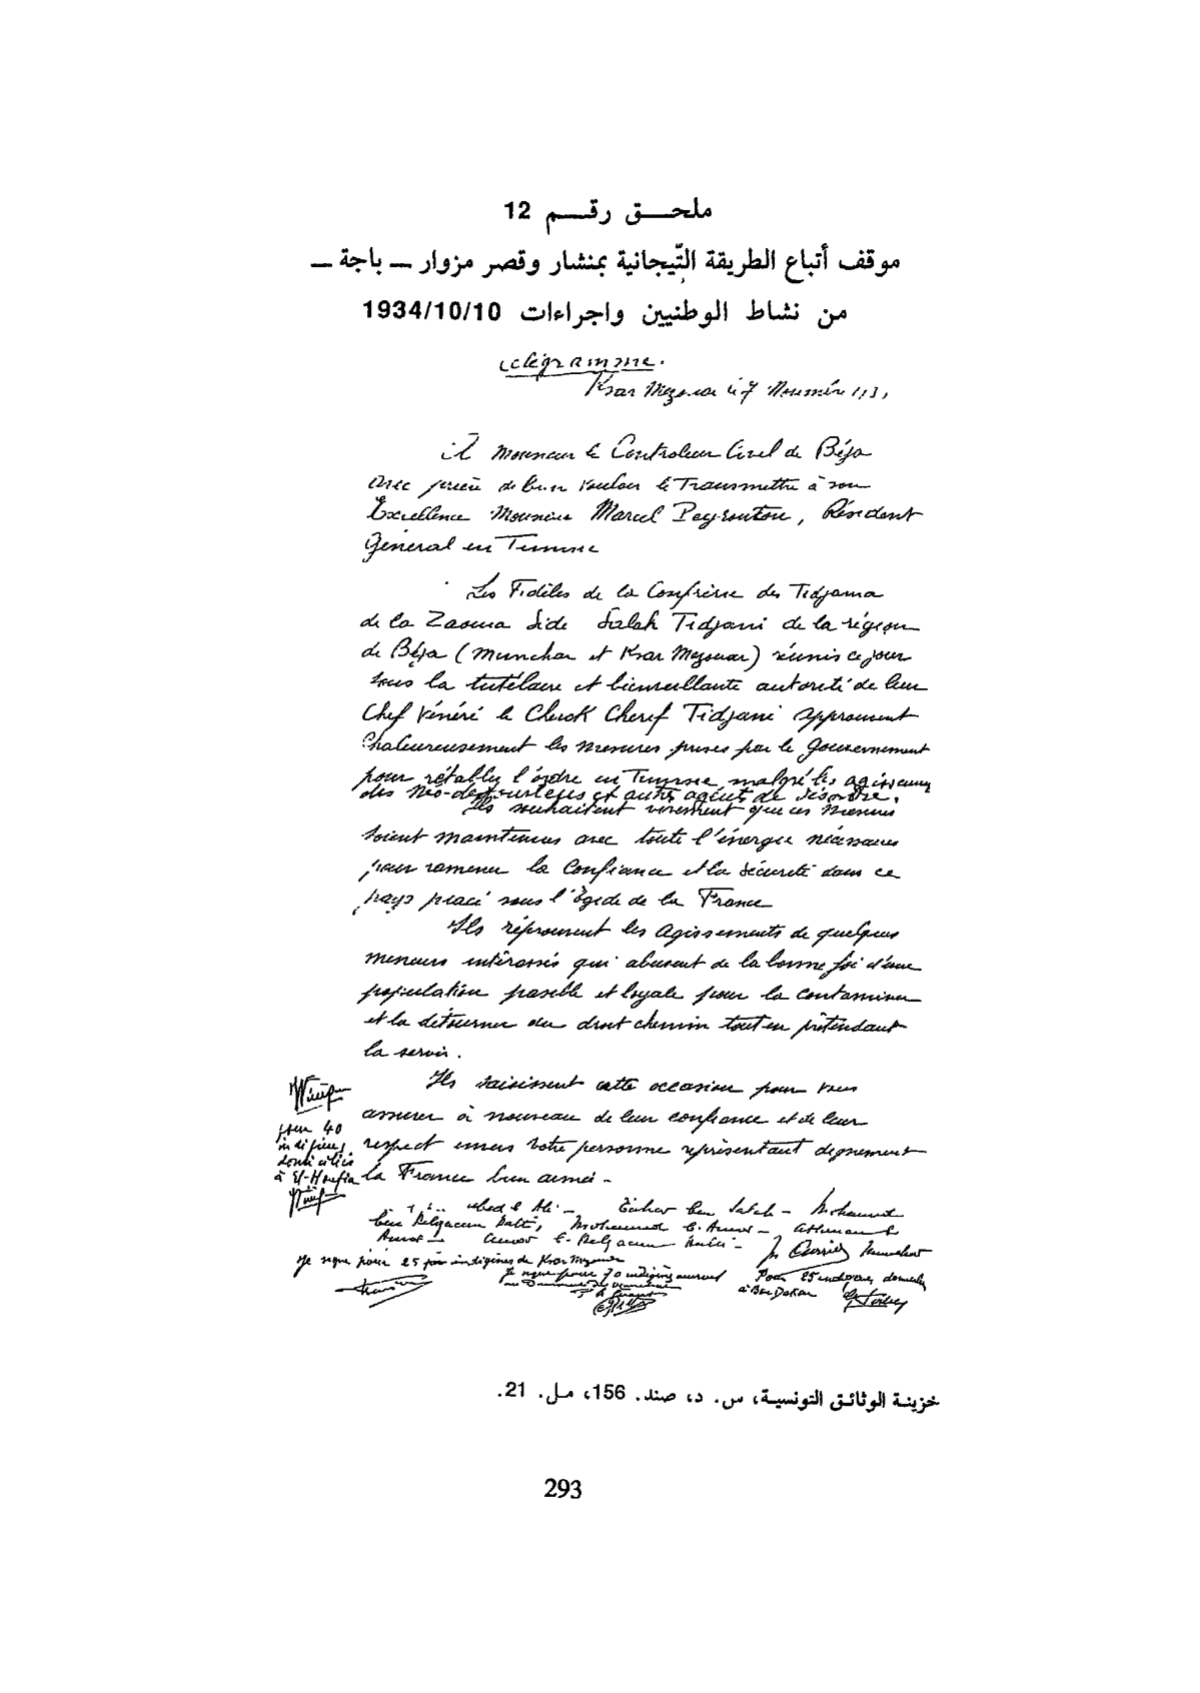 ملحـــق رقـــم 12
موقف أتباع الطريقة التّيجانية بمنشار وقصر مزوار ــ باجة ــ
من نشاط الوطنيين واجراءات 1934/10/10
télégramme.
Ksar Mezouar le 7 Novembre
A Monsieur le Controleur Civil de Béja
avec prière de bien vouloir le Transmettre à son
Excellence Monsieur Marcel Peyrouton, Résident
Général en Tunisie
Les Fidèles de la Confrérie des Tidjania
de la Zaouia Side Salah Tidjani de la région
de Béja (Munchar et Ksar Mezouar) réunis ce jour
sous la tutélaire et bienveillante autorité de leur
Chef Vénéré le Cheick Cherif Tidjani approuvent
Chaleureusement les mesures prises par le Gouvernement
pour rétablir l'ordre en Tunisie malgré les agissements
des néo-destouriens et autres agents de désordre.
Ils souhaitent vivement que ces mesures
soient maintenues avec toute l'énergie nécessaire
pour ramener la Confiance et la sécurité dans ce
pays placé sous l'égide de la France
Ils réprouvent les agissements de quelques
meneurs intéressés qui abusent de la bonne foi d'une
population paisible et loyale pour la contaminer
et la détourner du droit chemin tout en prétendant
la servir.
Ils saisissent cette occasion pour vous
assurer à nouveau de leur confiance et de leur
respect envers votre personne représentant dignement
la France bien aimée -
pour 40
indigènes
domiciliés
à El-Houfia
Ali - Tahar ben Salah - Mohamed
ben Belgacem Mohamed b. Amor - Athman b
Amor - Amor b. Belgacem
Je signe pour 25 indigènes de Ksar Mezouar
Je signe pour 70 indigènes
Pour 25 indigènes
à Bou Dokan
خزينة الوثائق التونسية، س. د، صند. 156، مـل. 21.
293